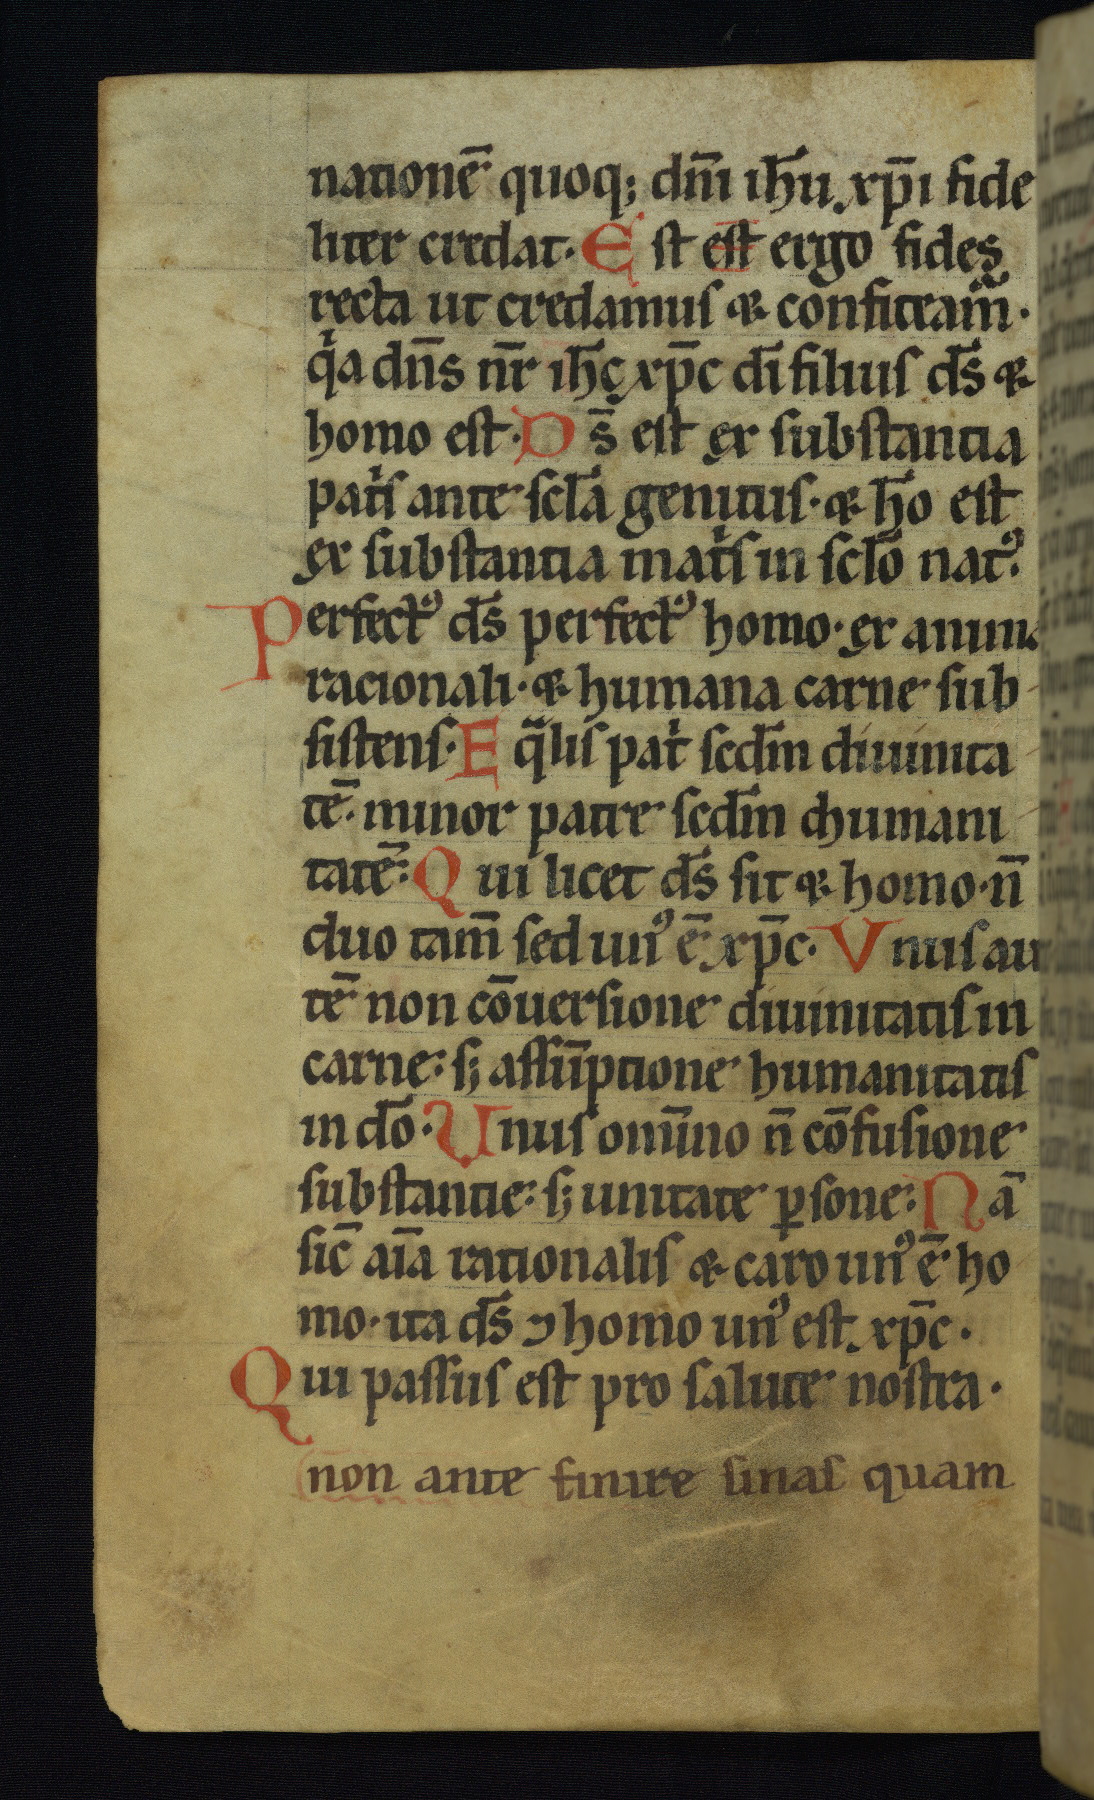 natione᷒̄ quoq; dn̄i ih̄u xp̄i fide
liter credat· E st est ergo fides
recta ut credamus & confiteam̄·
qͥa dn̄s nr̄ ih̄c xp̄c dī filius ds̄ &
homo est· D s̄ est ex substantia
patͥs ante scl̄a genitus· & ho̅ est
ex substantia matͥs in scl̄o natꝰ·
Perfectꝰ ds̄ perfectꝰ homo· ex anima
racionali· & humana carne sub
sistens· E qͣlis patͥ scdm̄ diuinita
tē· minor patre scdm̄ dhumani
tatē: Q ui licet ds̄ sit & homo· n̄
duo tam̄ sed unꝰ ē xp̄c· V nus au
tē non cōuersione diuinitatis in
carne: sꝫ assūptione humanitatis
in dō· Unus om̄ino n̄ cōfusione
substantie: sꝫ unitate ꝑsone: N ā
sic̄ aīa rationalis & caro unꝰ ē ho
mo· ita ds̄ ⁊ homo unꝰ est xp̄c·
Qui passus est pro salute nostra·
non ante finire sinas quam